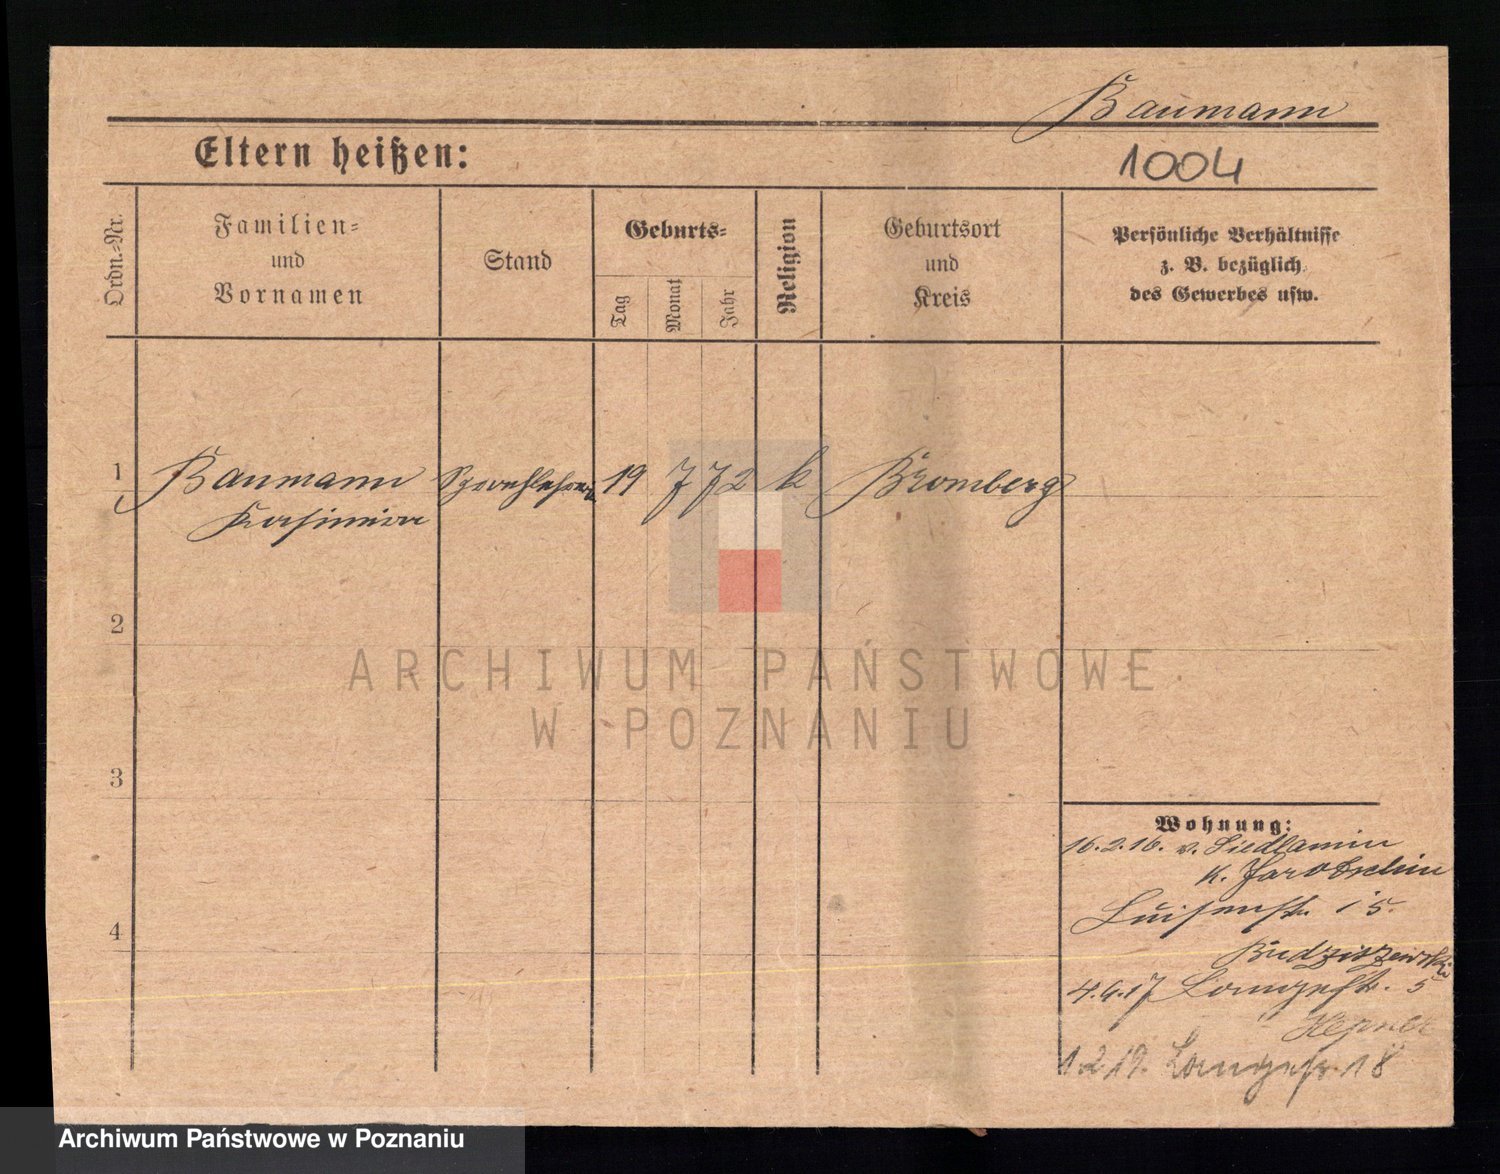 Baumann
Eltern heißen:
1004
Ordn.-Nr.
Familien-
und
Vornamen
Stand
Geburts-
Tag
Monat
Jahr
Religion
Geburtsort
und
Kreis
Persönliche Verhältnisse
z. B. bezüglich
des Gewerbes usw.
1 Baumann Sprachlehrerin 19 7 72 k Bromberg
Kasimira
2
3
4
Wohnung:
16.2.16. v. Siedlamin
K. Jarotschin
Luisenstr. 15.
Budziszewski
4.4.17 Langestr. 5
Hepner
1.2.19. Langestr. 18
ARCHIWUM PAŃSTWOWE
W POZNANIU
Archiwum Państwowe w Poznaniu